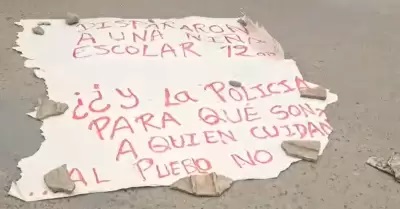 DISPARARON
A UNA NIÑA
ESCOLAR 12
¿¿Y LA POLICIA
PARA QUÉ SON?
A QUIEN CUIDAN
...AL PUEBO NO